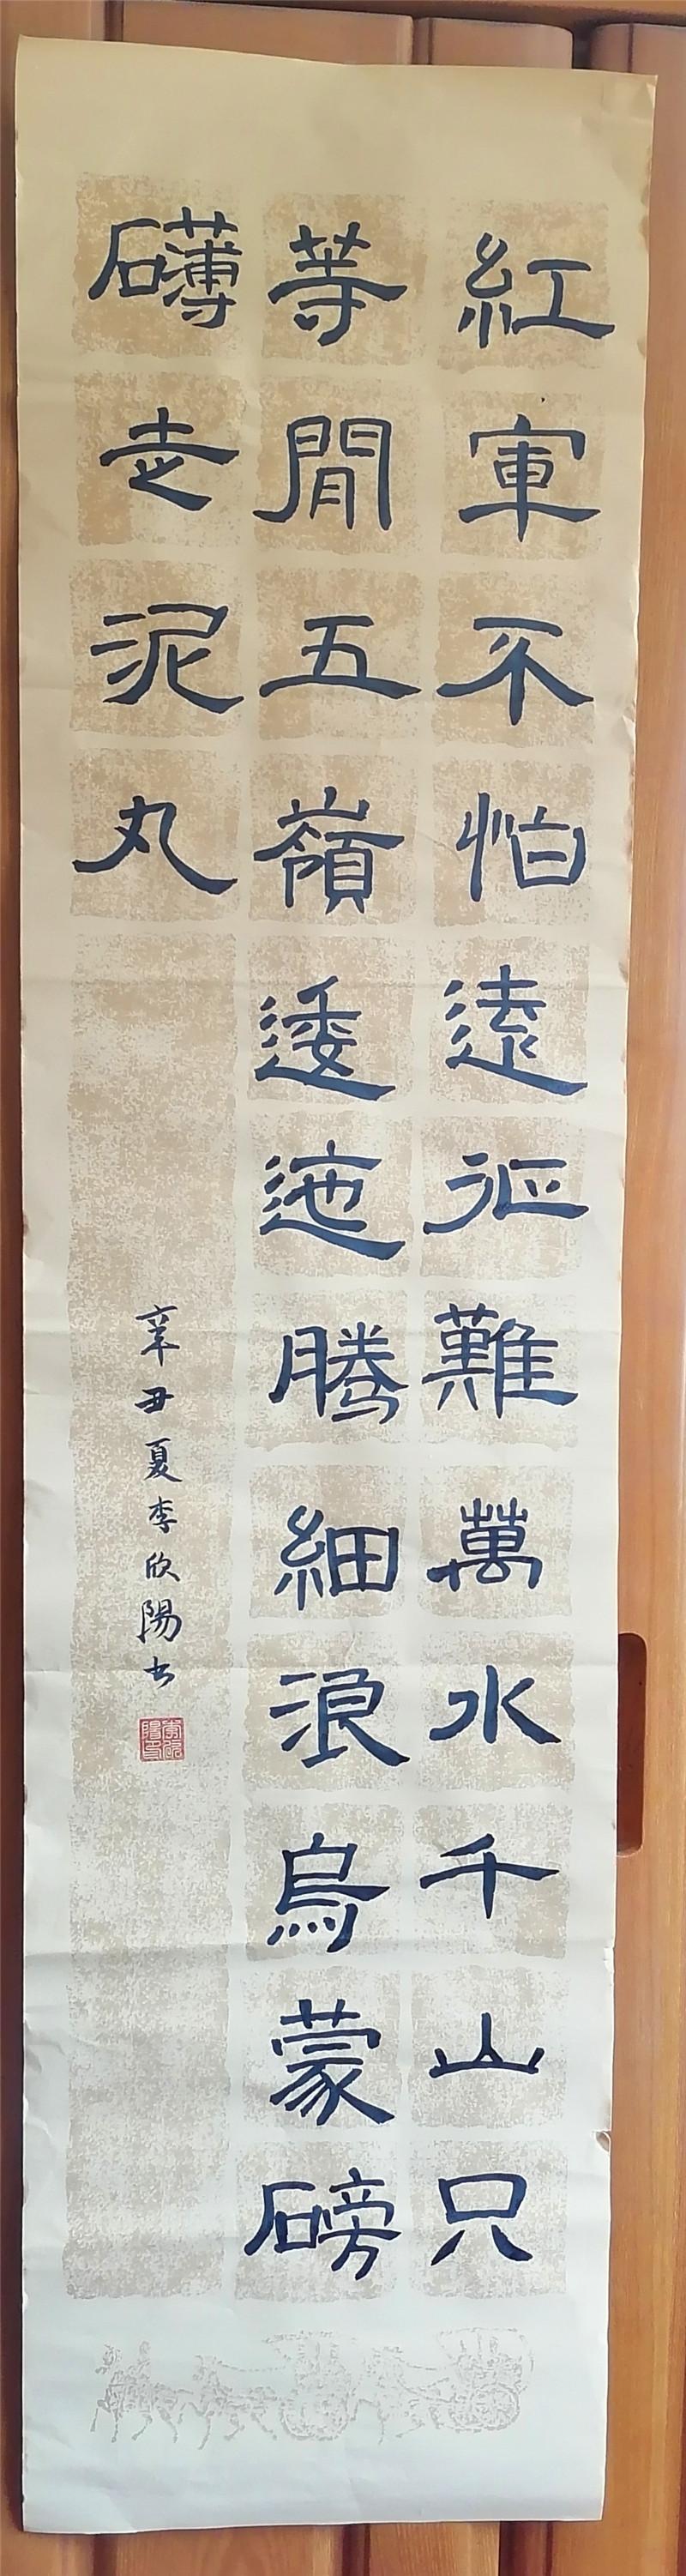 紅軍不怕遠征難萬水千山只
等閒五嶺逶迤騰細浪烏蒙磅
礴走泥丸
辛丑夏李欣陽书